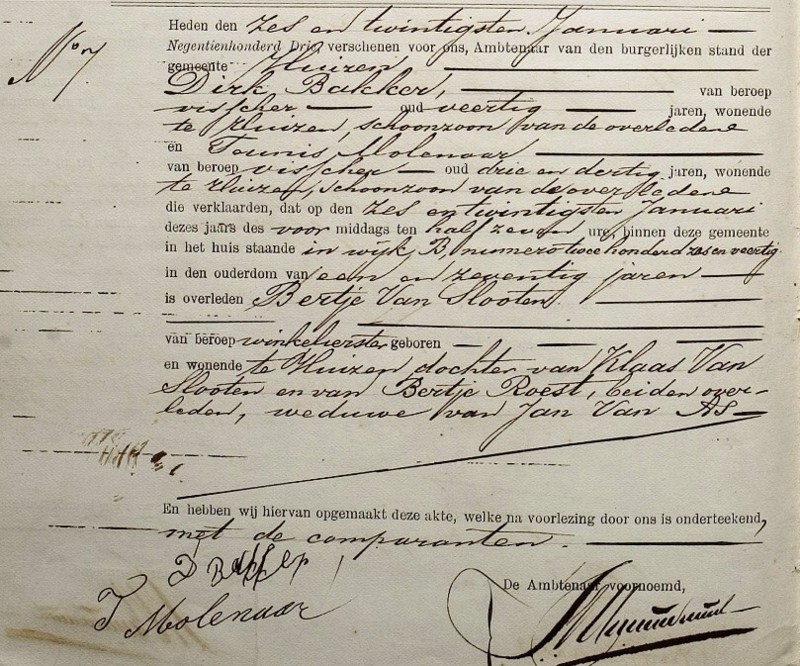 No 7
Heden den zes en twintigsten Januari
Negentienhonderd Drie, verschenen voor ons, Ambtenaar van den burgerlijken stand der
gemeente Huizen
Dirk Bakker, van beroep
visscher oud veertig jaren, wonende
te Huizen, schoonzoon van de overledene
en Teunis Molenaar
van beroep visscher oud drie en dertig jaren, wonende
te Huizen, schoonzoon van de overledene
die verklaarden, dat op den zes en twintigsten Januari
dezes jaars des voor middags ten half zeven ure, binnen deze gemeente
in het huis staande in wijk B, numero twee honderd zes en veertig
in den ouderdom van een en zeventig jaren
is overleden Bertje Van Slooten
van beroep winkelierster geboren
en wonende te Huizen, dochter van Klaas Van
Slooten en van Bertje Roest, beiden over-
leden, weduwe van Jan Van As
En hebben wij hiervan opgemaakt deze akte, welke na voorlezing door ons is onderteekend,
met de comparanten.
D Bakker
De Ambtenaar voornoemd,
T Molenaar